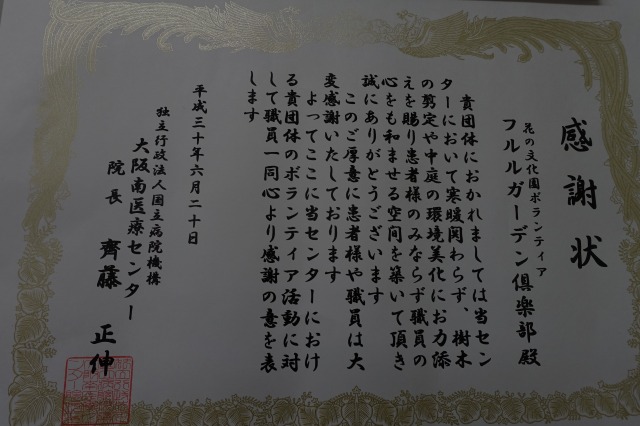 感謝状
花の文化園ボランティア
フルルガーデン倶楽部殿
貴団体におかれましては当セン
ターにおいて寒暖関わらず、樹木
の剪定や中庭の環境美化にお力添
えを賜り患者様のみならず職員の
心をも和ませる空間を築いて頂き
誠にありがとうございます
このご厚意に患者様や職員は大
変感謝いたしております
よってここに当センターにおけ
る貴団体のボランティア活動に対
して職員一同心より感謝の意を表
します
平成三十年六月二十日
独立行政法人国立病院機構
大阪南医療センター
院長 齊藤 正伸